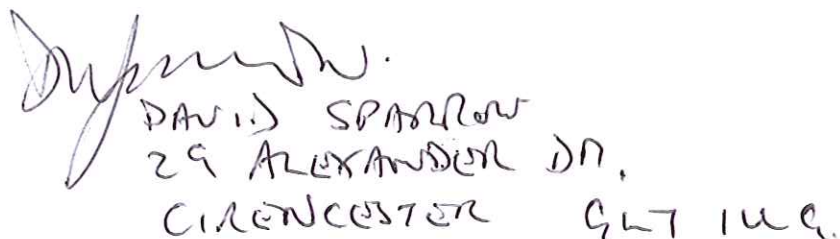 DAVID SPARROW
29 ALEXANDER DR.
CIRENCESTER GL7 1UG.